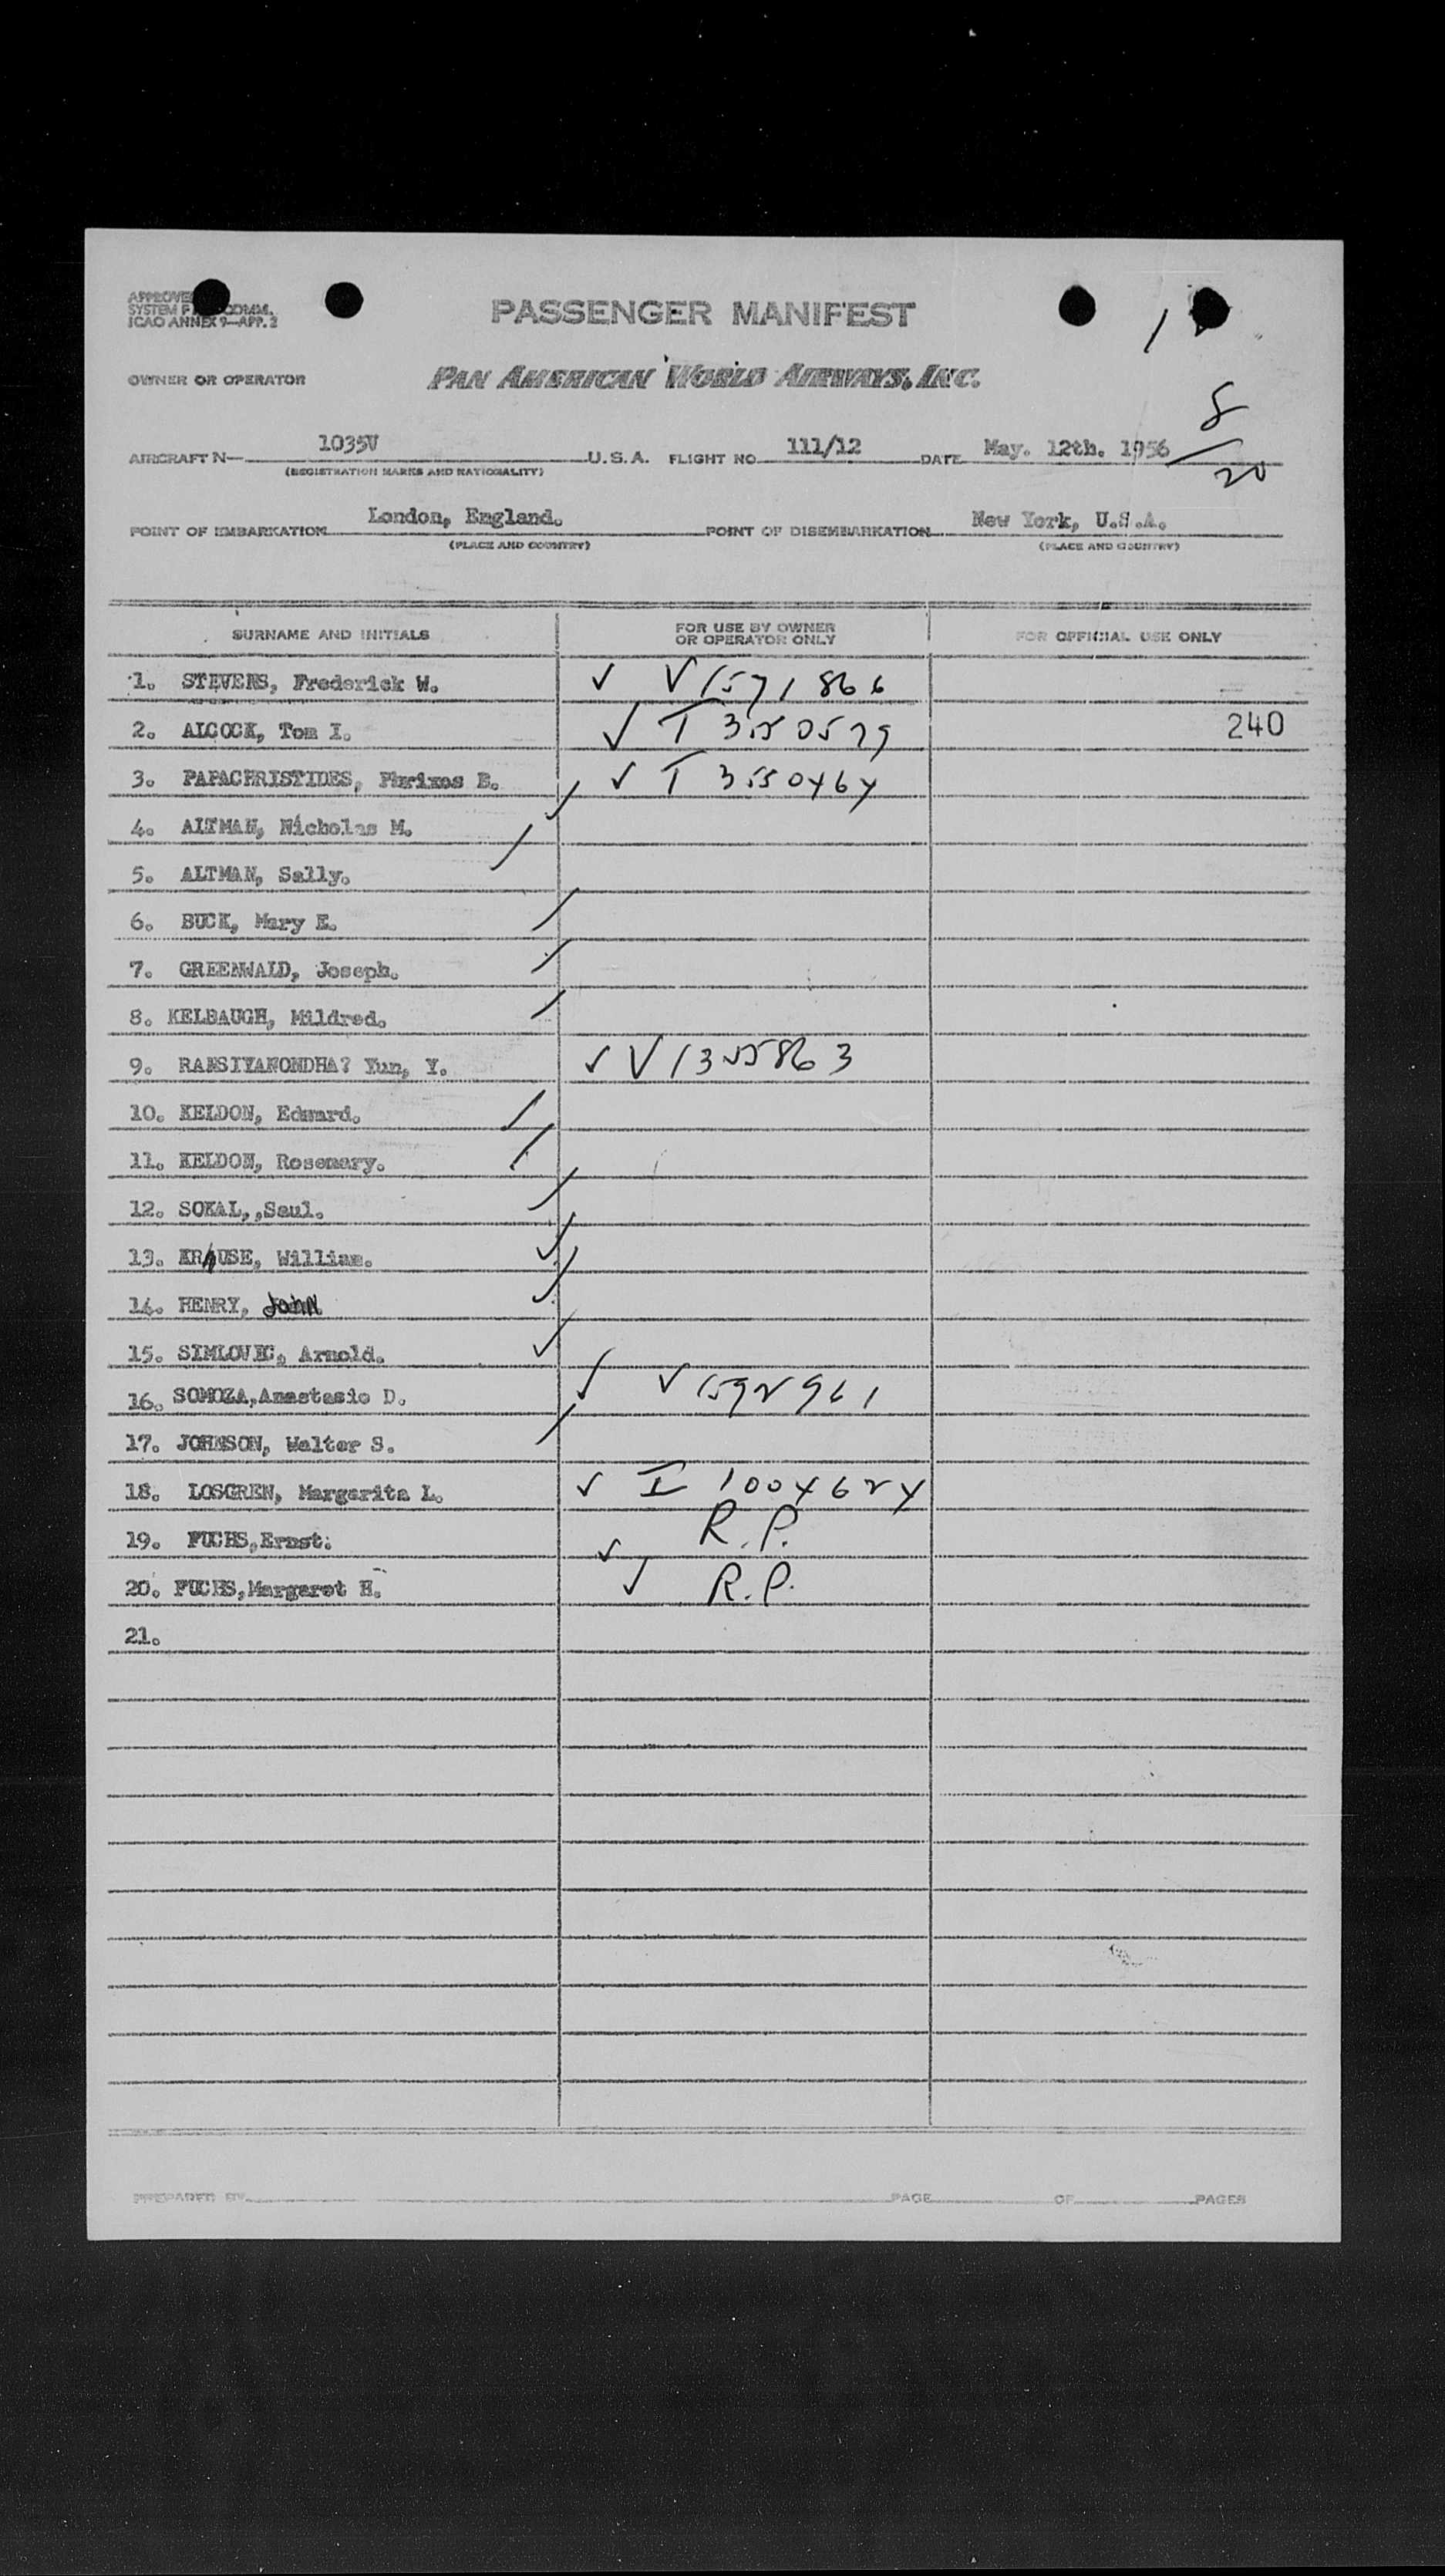 PASSENGER MANIFEST
SYSTEM F COMM.
ICAO ANNEX 9—APP. 2
OWNER OR OPERATOR PAN AMERICAN WORLD AIRWAYS, INC.
8
20
AIRCRAFT N— 1035V U.S.A. FLIGHT NO 111/12 DATE May. 12th. 1956
(REGISTRATION MARKS AND NATIONALITY)
POINT OF EMBARKATION London, England. POINT OF DISEMBARKATION New York, U.S.A.
(PLACE AND COUNTRY) (PLACE AND COUNTRY)
SURNAME AND INITIALS FOR USE BY OWNER OR OPERATOR ONLY FOR OFFICIAL USE ONLY
1. STEVENS, Frederick W. ✓ V1571866
2. ALCOCK, Tom I. ✓ T 3550579 240
3. PAPACHRISTIDES, Phrixos B. ✓ T 3550464
4. ALTMAN, Nicholas M.
5. ALTMAN, Sally.
6. BUCK, Mary E.
7. GREENWALD, Joseph.
8. KELBAUGH, Mildred.
9. RANSIYANONDHA? Yun, Y. ✓ V1355863
10. KELDON, Edward.
11. KELDON, Rosemary.
12. SOKAL,,Saul.
13. KRAUSE, William.
14. HENRY, John
15. SIMLOVEC, Arnold.
16. SOMOZA,Anastasio D. ✓ V1592961
17. JOHNSON, Walter S.
18. LOSGREN, Margarita L. ✓ I 1004624
19. FUCHS,Ernst. ✓ R.P.
20. FUCHS,Margaret H. ✓ R.P.
21.
PREPARED BY PAGE OF PAGES